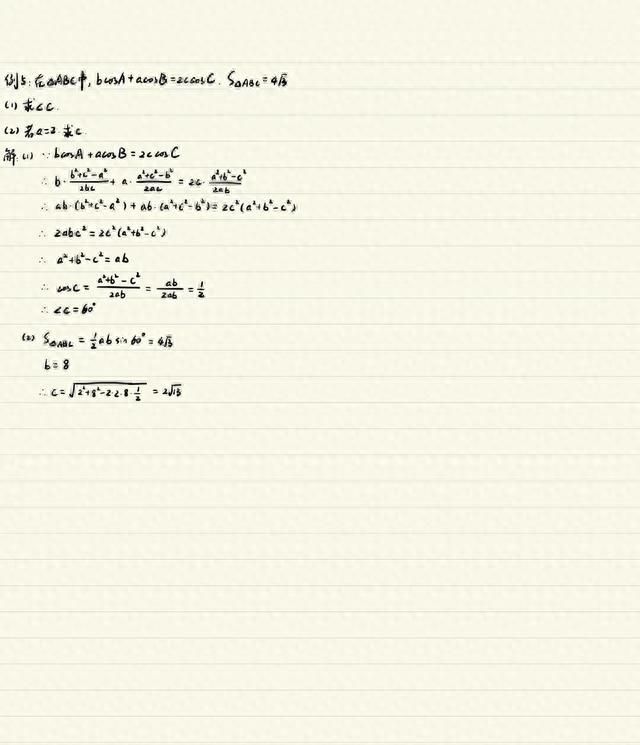 例5: 在△ABC中, bcosA+acosB=2ccosC. S△ABC=4√3
(1) 求∠C.
(2) 若a=2. 求c.
解: (1) ∵ bcosA+acosB=2ccosC
∴ b·(b²+c²-a²)/2bc + a·(a²+c²-b²)/2ac = 2c·(a²+b²-c²)/2ab
∴ ab·(b²+c²-a²)+ab·(a²+c²-b²)=2c²(a²+b²-c²)
∴ 2abc²=2c²(a²+b²-c²)
∴ a²+b²-c²=ab
∴ cosC=(a²+b²-c²)/2ab=ab/2ab=1/2
∴ ∠C=60°
(2) S△ABC=1/2absin60°=4√3
b=8
∴ c=√(2²+8²-2·2·8·1/2)=2√13